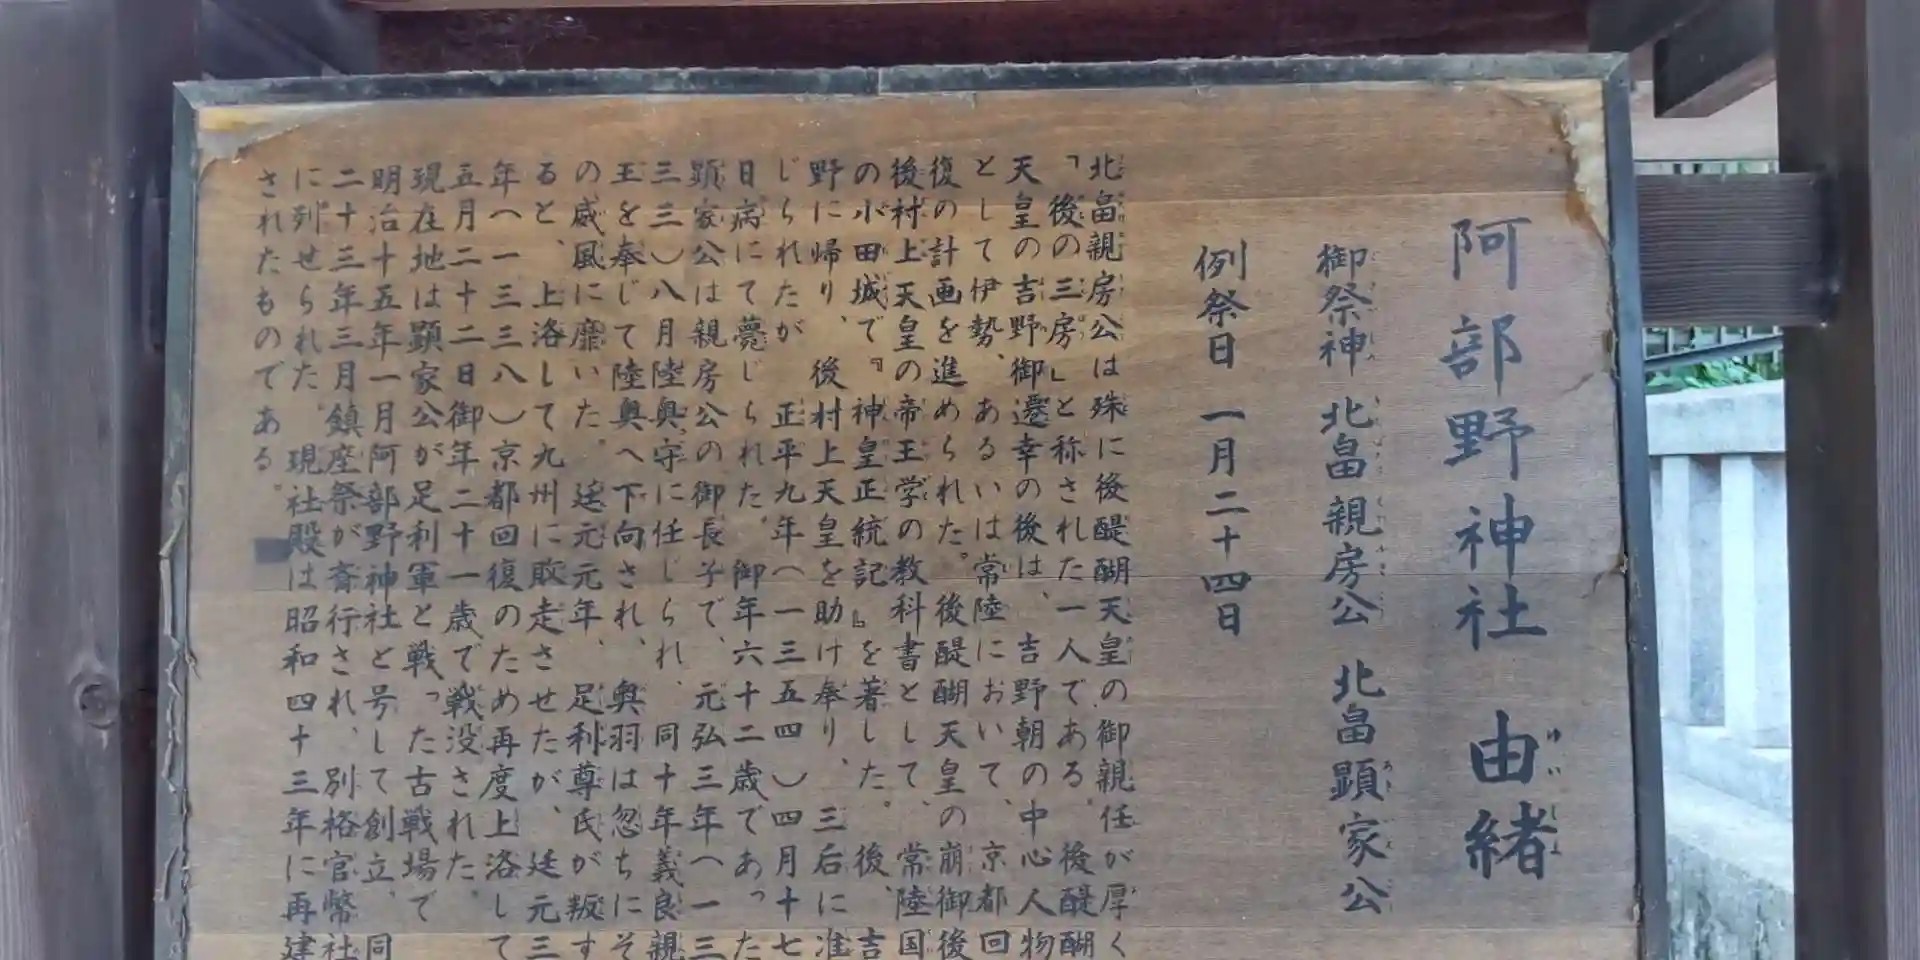 阿部野神社 由緒
ゆいしょ
御祭神 北畠親房公 北畠顕家公
例祭日 一月二十四日
北畠親房公は殊に後醍醐天皇の御親任が厚く
「後の三房」と称された一人である。後醍醐
天皇の吉野御遷幸の後は、吉野朝の中心人物
として伊勢、あるいは常陸において、京都回
復の計画を進められた。後醍醐天皇の崩御後
後村上天皇の帝王学の教科書として、常陸国
の小田城で『神皇正統記』を著した。後、吉
野に帰り、後村上天皇を助け奉り、三后に准
じられたが 正平九年(一三五四)四月十七
日病にて薨じられた。御年六十二歳であった
顕家公は親房公の御長子で、元弘三年(一三
三三)八月陸奥守に任じられ、同十年義良親
王を奉じて陸奥へ下向され、奥羽は忽ちにそ
の威風に靡いた。延元元年、足利尊氏が叛す
ると、上洛して九州に敗走させたが、延元三
年(一三三八)京都回復のため再度上洛して
五月二十二日御年二十一歳で戦没された。
現在地は顕家公が足利軍と戦った古戦場で
明治十五年一月阿部野神社と号して創立、同
二十三年三月鎮座祭が斎行され、別格官幣社
に列せられた。現社殿は昭和四十三年に再建
されたものである。